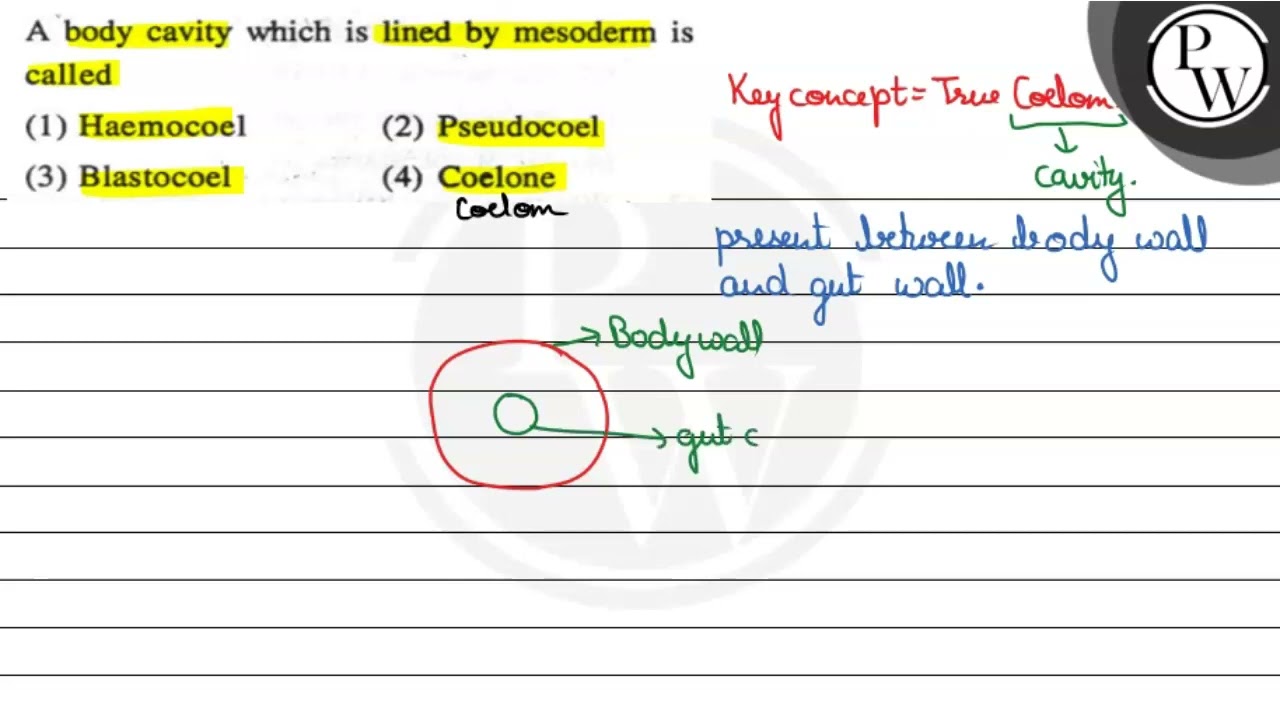 A body cavity which is lined by mesoderm is
called
(1) Haemocoel (2) Pseudocoel
(3) Blastocoel (4) Coelone
Coelom
Key concept = True Coelom
cavity.
present between body wall
and gut wall.
Body wall
gut c
PW